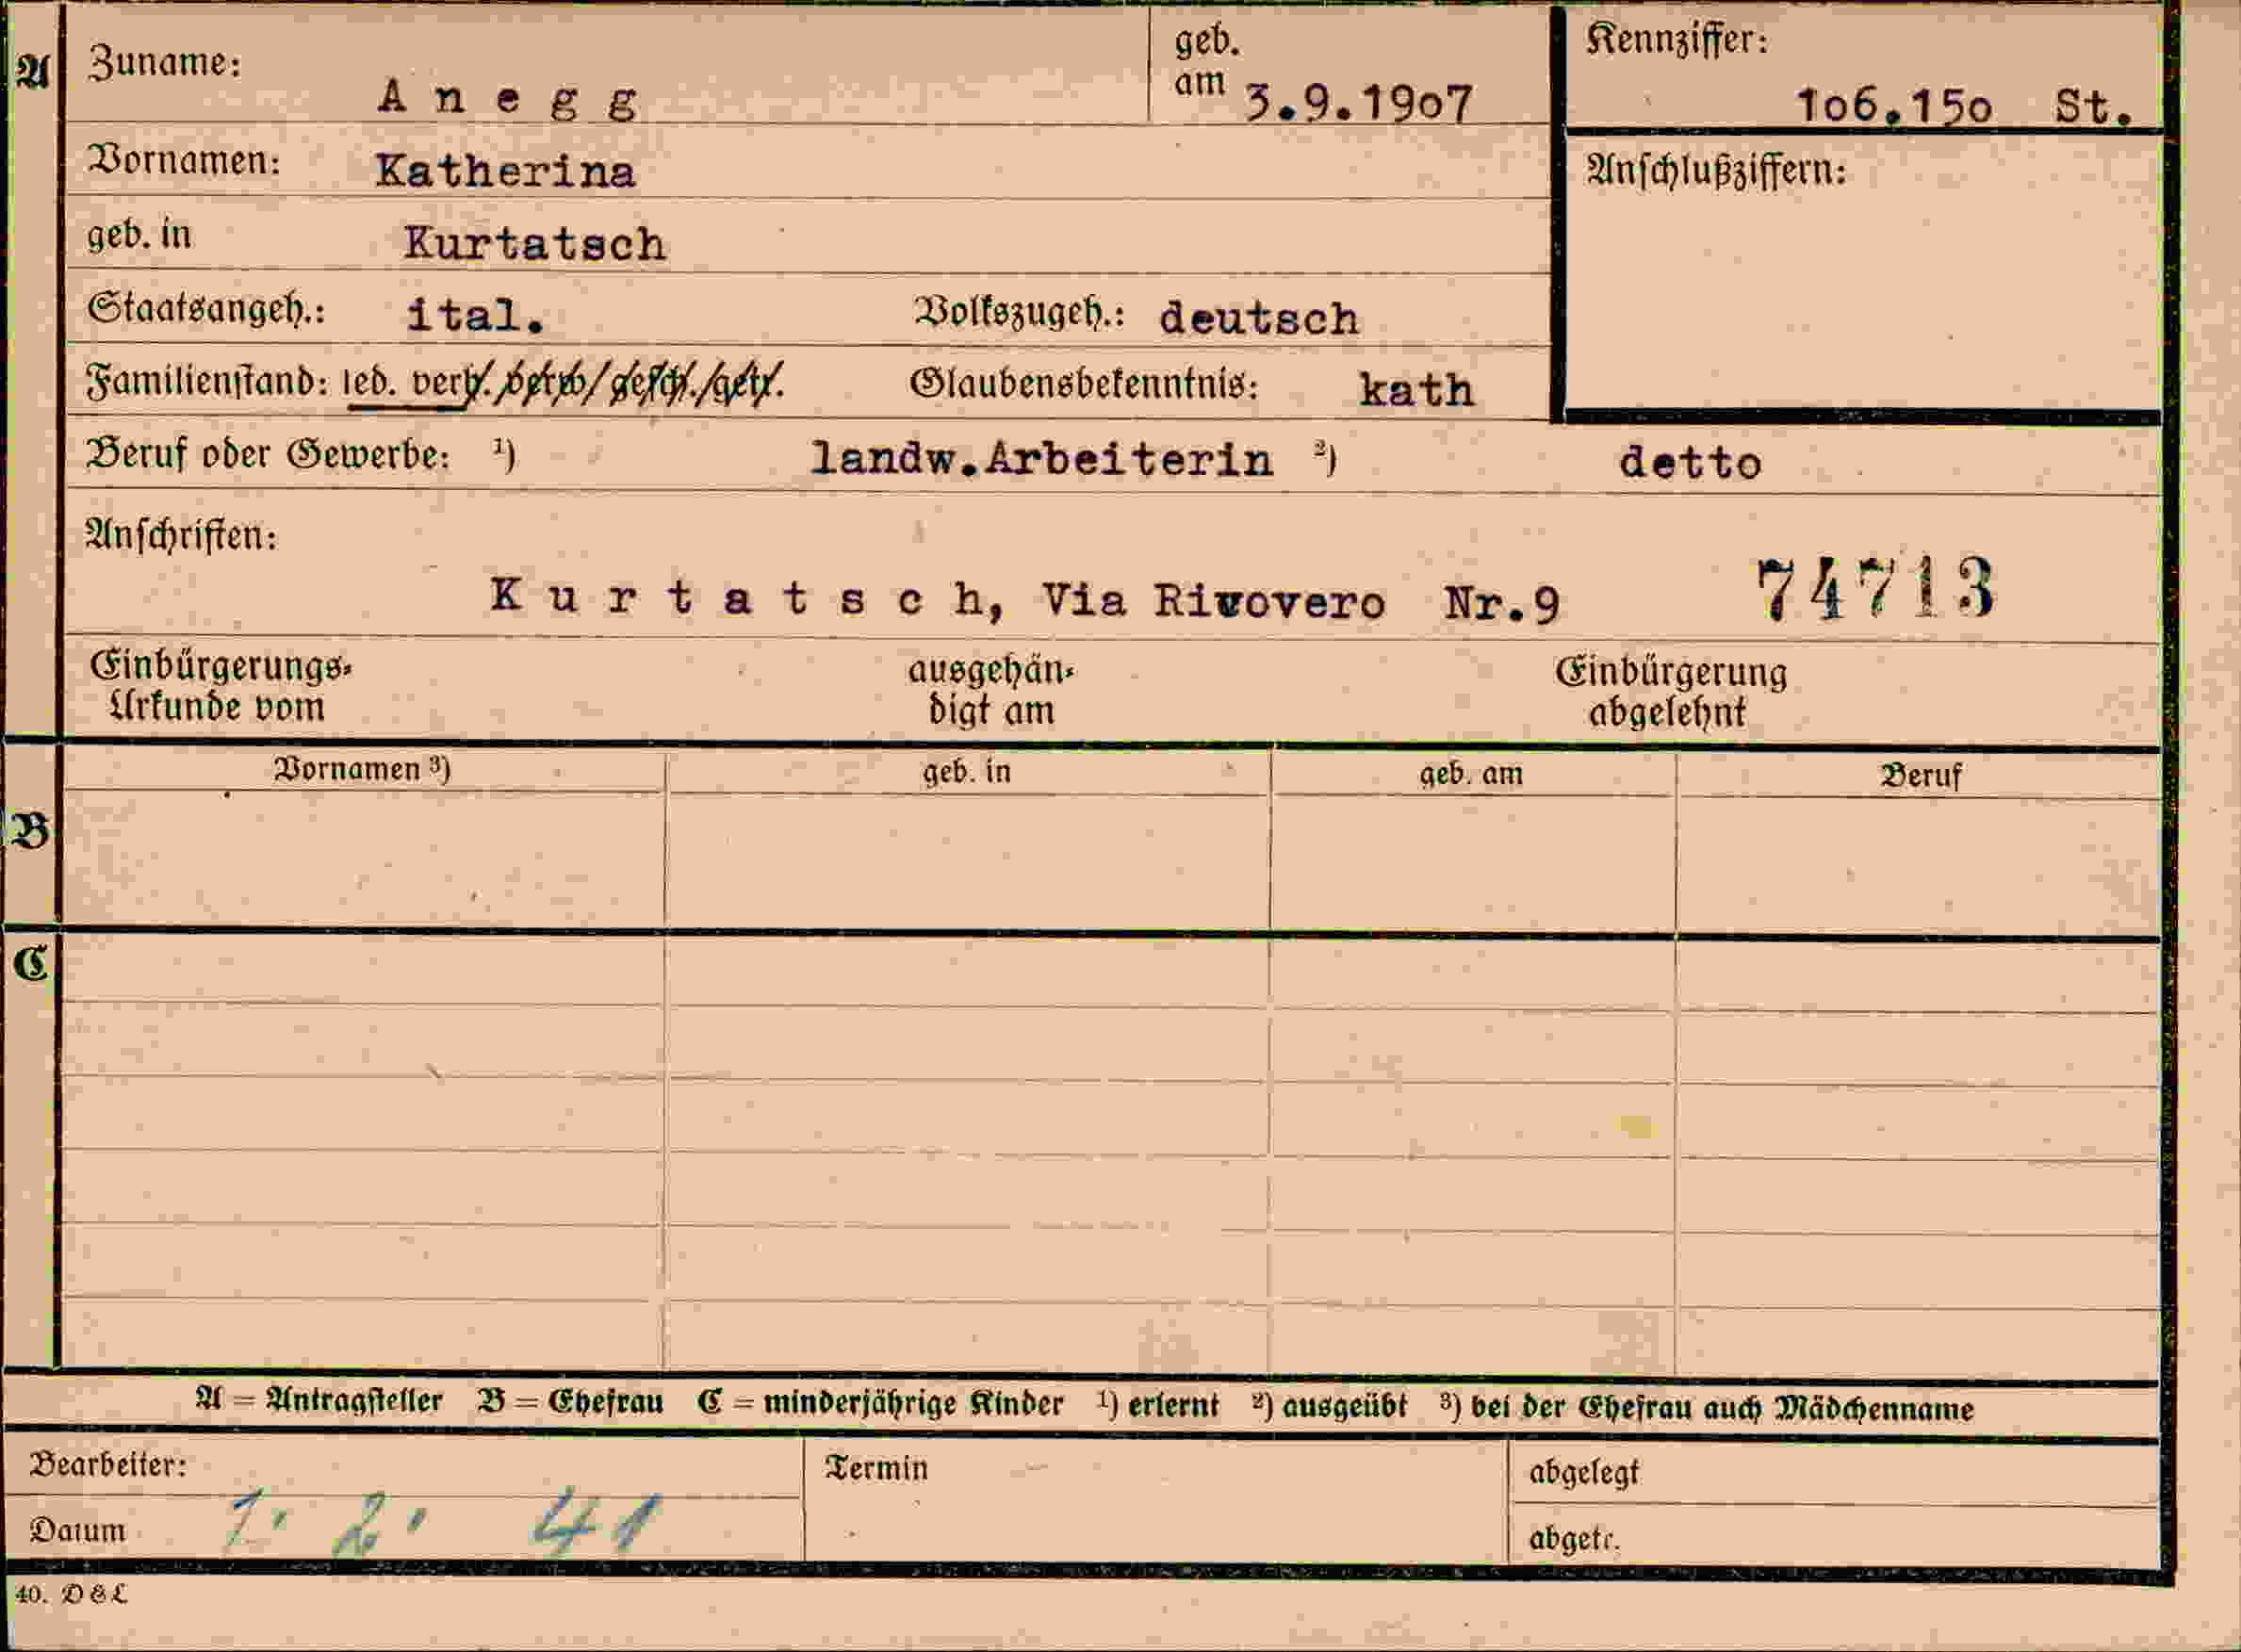 A Zuname: Anegg geb. am 3.9.1907 Kennziffer: 1o6.15o St.
Vornamen: Katherina Anschlußziffern:
geb. in Kurtatsch
Staatsangeh.: ital. Volkszugeh.: deutsch
Familienstand: led. verh./verw./gesch./get. Glaubensbekenntnis: kath
Beruf oder Gewerbe: ¹) landw.Arbeiterin ²) detto
Anschriften:
Kurtatsch, Via Rivovero Nr.9 74713
Einbürgerungs-Urkunde vom ausgehändigt am Einbürgerung abgelehnt
Vornamen ³) geb. in geb. am Beruf
B
C
A = Antragsteller B = Ehefrau C = minderjährige Kinder ¹) erlernt ²) ausgeübt ³) bei der Ehefrau auch Mädchenname
Bearbeiter: Termin abgelegt
Datum 1. 2. 41 abgetr.
40. DEL